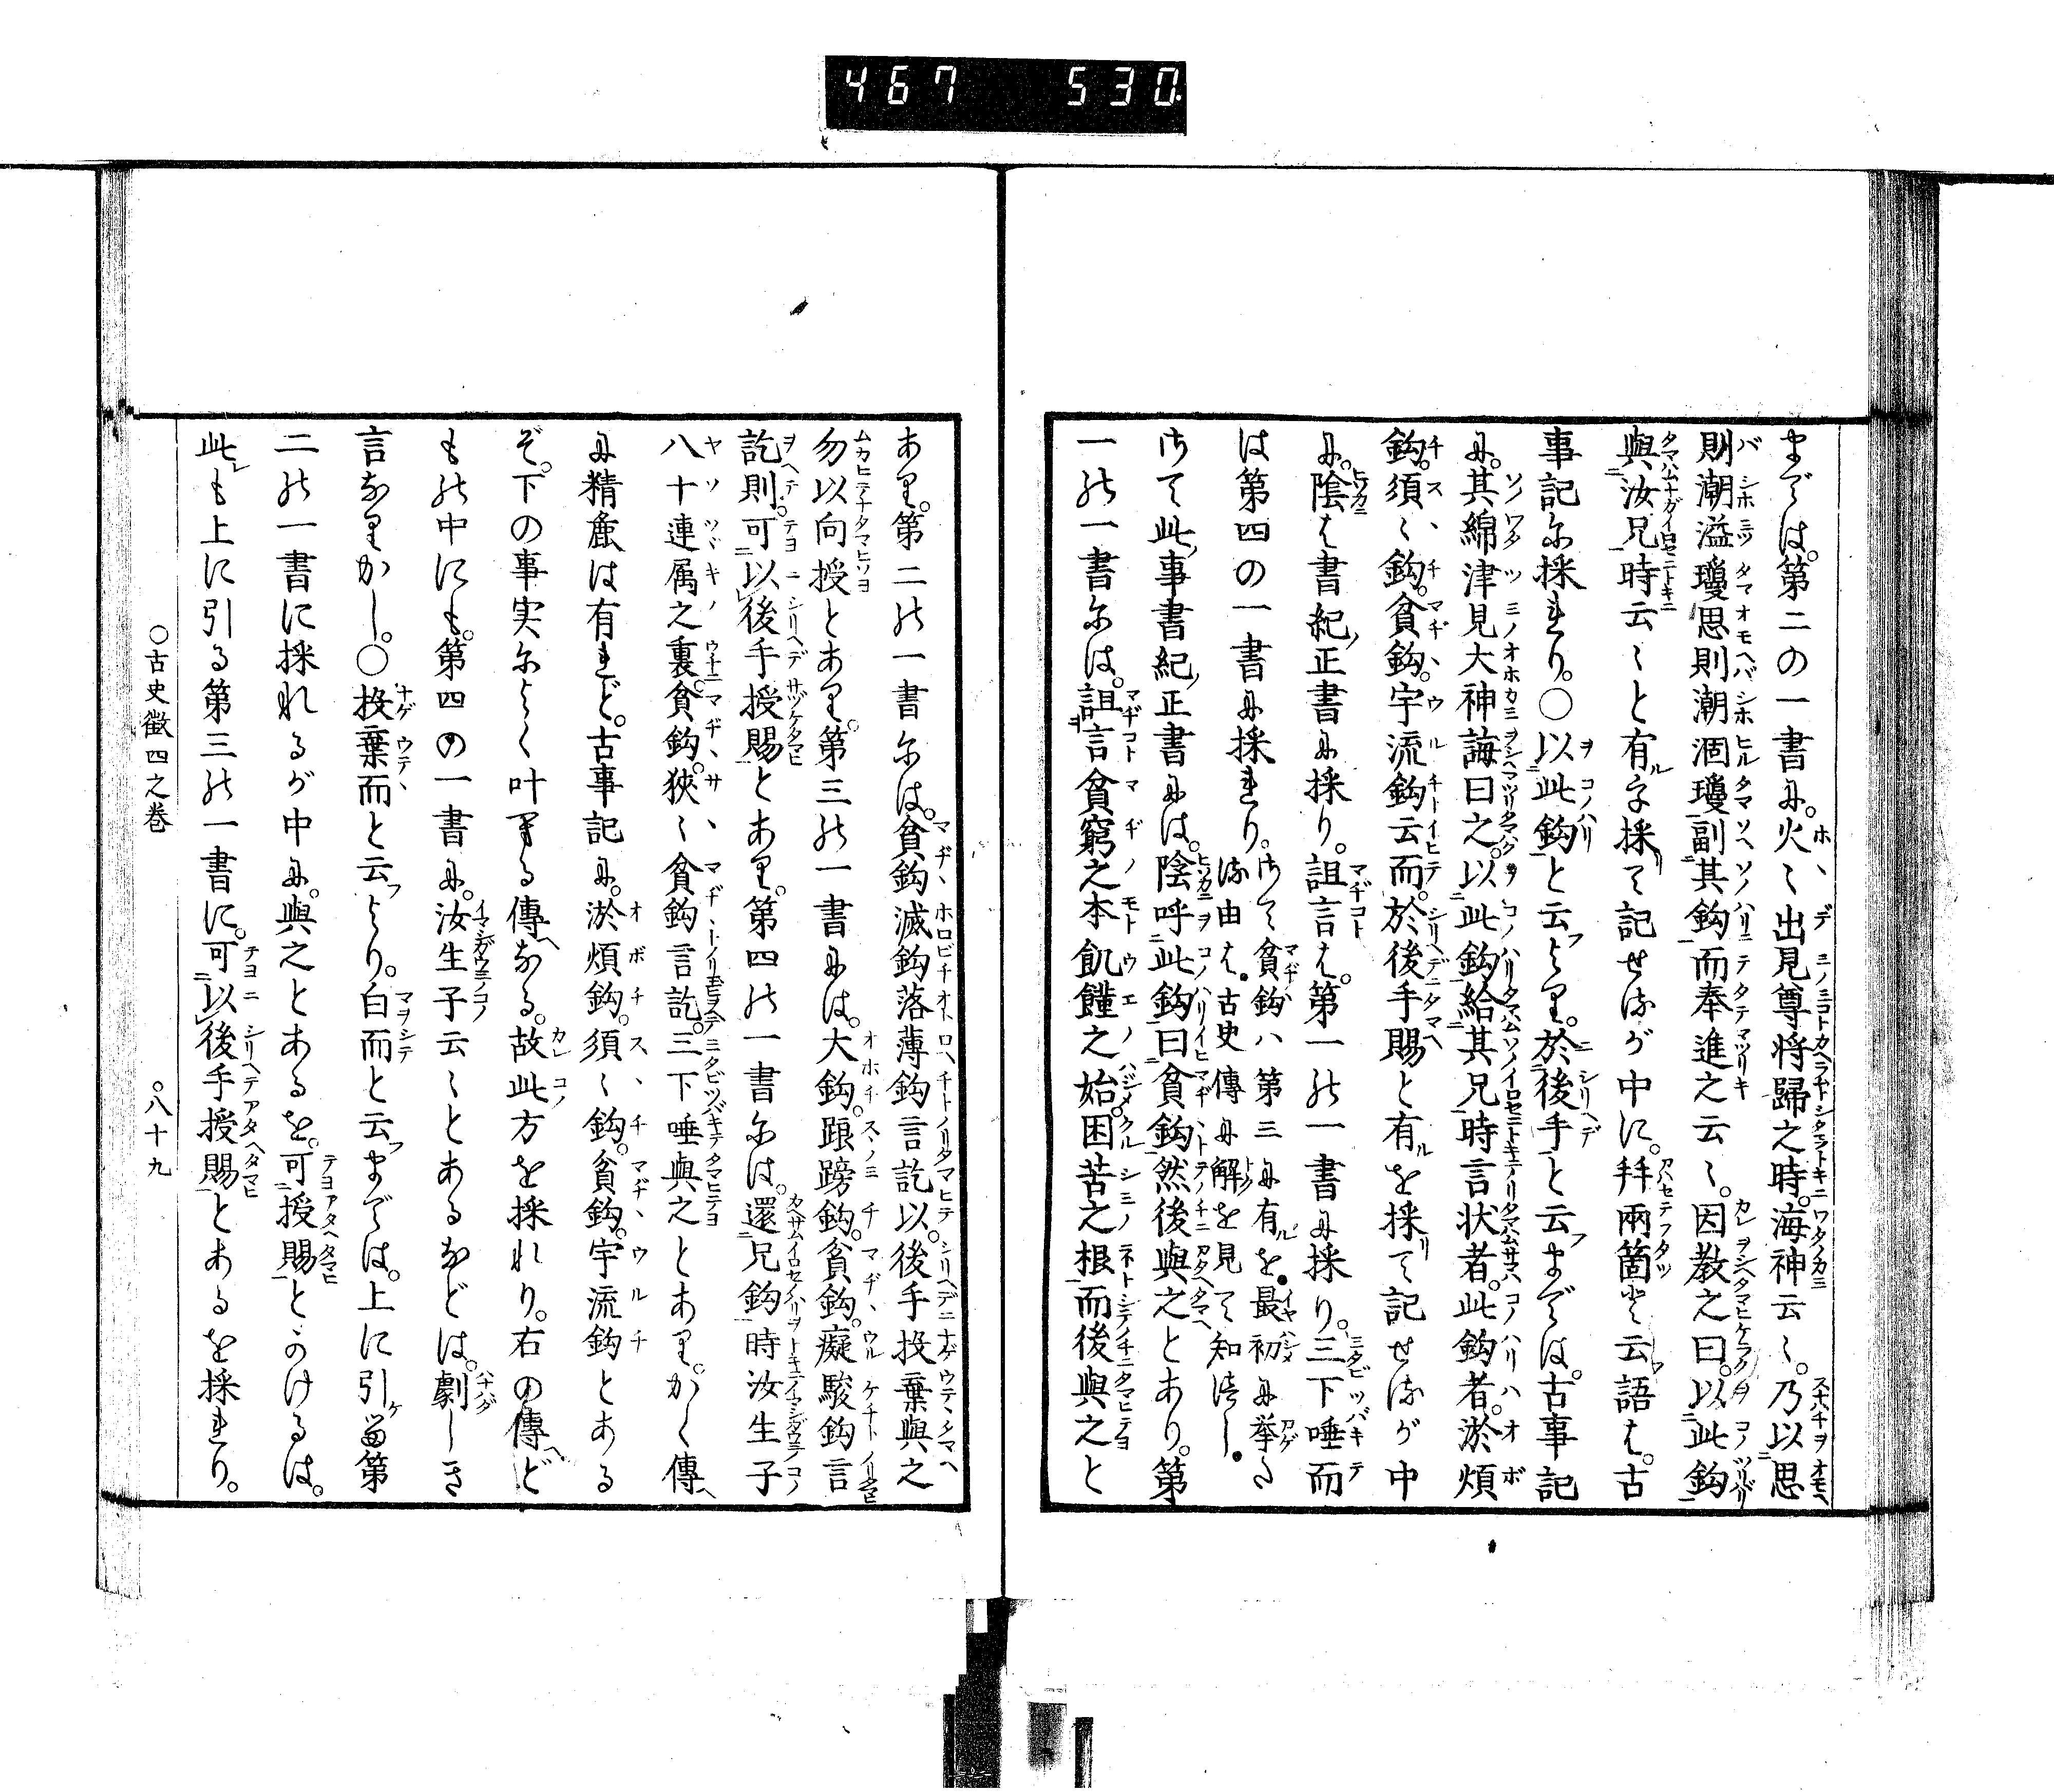 467 530
までは。第二の一書に。火〻出見尊将歸之時。海神云〻。乃以思
則潮溢瓊思則潮涸瓊副其鈎而奉進之云〻。因教之曰。以此鈎
與汝兄時云〻と有を採て記せるが中に。拜兩箇と云語は。古
事記に採れり。○以此鈎と云より。於後手と云までは。古事記
に。其綿津見大神誨曰之。以此鈎給其兄時言状者。此鈎者。淤煩
鈎。須〻鈎。貧鈎。宇流鈎云而。於後手賜と有を採て記せるが中
に。陰は書紀正書に採り。詛言は。第一の一書に採り。三下唾而
は第四の一書に採れり。
さて貧鈎ハ第三に有を。最初に挙た
る由は。古史傳に解を見て知べし。
さて此事書紀正書には。陰呼此鈎曰貧鈎然後與之とあり。第
一の一書には。詛言貧窮之本飢饉之始。困苦之根而後與之と
あり。第二の一書には。貧鈎滅鈎落薄鈎言訖以。後手投棄與之
勿以向授とあり。第三の一書には。大鈎。踉䠙鈎。貧鈎。癡騃鈎言
訖則。可以後手授賜とあり。第四の一書には。還兄鈎時汝生子
八十連属之裏。貧鈎。狹〻貧鈎言訖。三下唾與之とあり。かく傳
に精麁は有れど。古事記に。淤煩鈎。須〻鈎。貧鈎。宇流鈎とある
ぞ。下の事実によく叶へる傳なる。故此方を採れり。右の傳ど
もの中にも。第四の一書に。汝生子云〻とあるなどは。劇しき
言なりかし。○投棄而と云より。白而と云までは。上に引る第
二の一書に採れるが中に。與之とあるを。可授賜とかけるは。
此も上に引る第三の一書に。可以後手授賜とあるを採れり。
○古史徴四之巻
○八十九